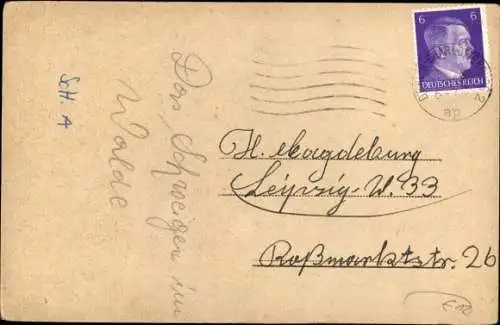 6 6
DEUTSCHES REICH
ap
2
Scht. A
Das Schweigen im
Walde
H. Magdeburg
Leipzig-W. 33
Roßmarktstr. 26